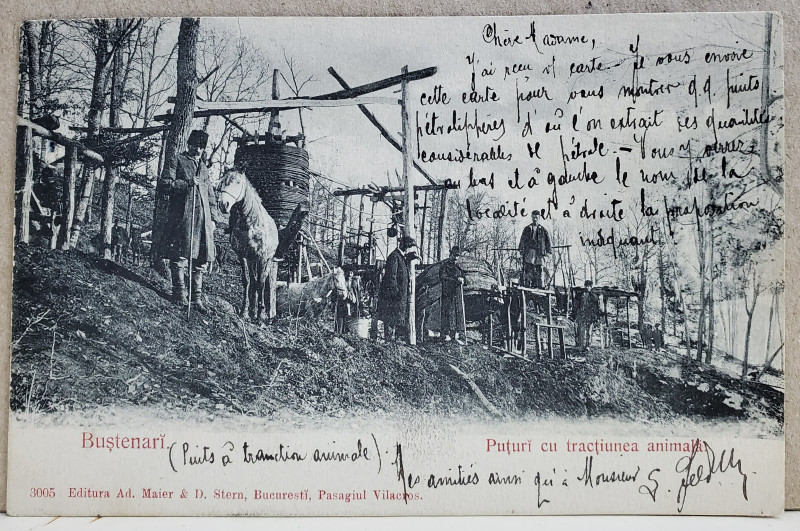 Chère Madame,
J'ai reçu v/ carte. Je vous envoie
cette carte pour vous montrer qq. puits
pétrolifères d'où l'on extrait ces quantités
considérables de pétrole. – Vous y verrez
au bas et à gauche le nom de la
localité et à droite la
indiquant.
Buștenarĭ.
(Puits à traction animale)
Puțurĭ cu tracțiunea animală
Mes amitiés ainsi qu'à Monsieur
3005 Editura Ad. Maier & D. Stern, Bucurestĭ, Pasagiul Vilacros.